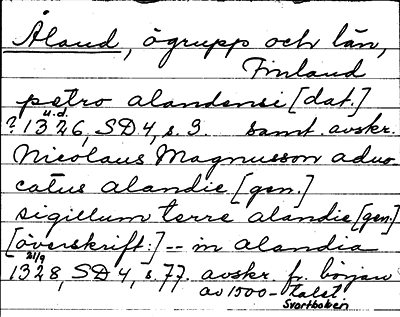 Åland, ögrupp och län,
Finland
petro alandensi [dat.]
u.d.
? 1326, SD 4, s. 3. samt. avskr.
Nicolaus Magnusson advo-
catus alandie [gen.]
sigillum terre alandie [gen.]
[överskrift:] -- in alandia
21/9
1328, SD 4, s. 77. avskr. fr. början
av 1500-talet
Svartboken